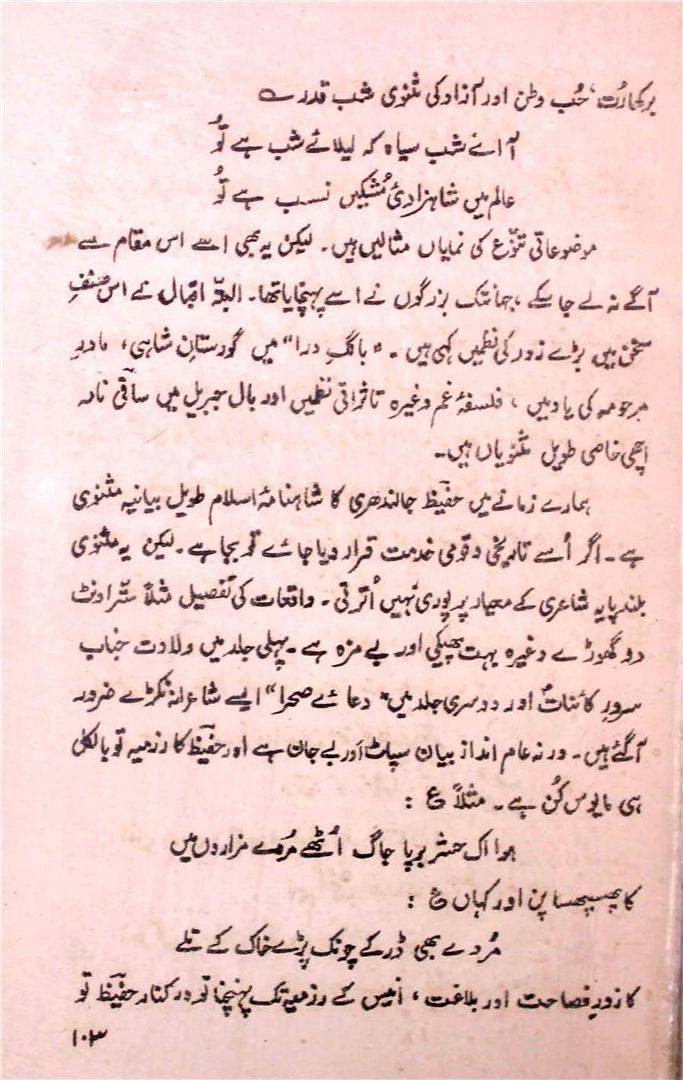 برکھارُت، حُب وطن اور آزاد کی مثنوی شب قدر ے
آ اے شب سیاہ کہ لیلائے شب ہے تُو
عالم میں شاہزادیٔ مُشکیں نسب ہے تُو
موضوعاتی تنوّع کی نمایاں مثالیں ہیں۔ لیکن یہ بھی اسے اس مقام سے
آگے نہ لے جا سکے، جہانتک بزرگوں نے اسے پہنچایا تھا۔ البتّہ اقبال نے اس صنفِ
سخن میں بڑے زور کی نظمیں کہی ہیں۔ "بانگِ درا" میں گورستانِ شاہی، مادرِ
مرحومہ کی یاد میں، فلسفۂ غم وغیرہ تاثراتی نظمیں اور بال جبریل میں ساقی نامہ
اچھی خاصی طویل مثنویاں ہیں۔
ہمارے زمانے میں حفیظؔ جالندھری کا شاہنامۂ اسلام طویل بیانیہ مثنوی
ہے۔ اگر اُسے تاریخی و قومی خدمت قرار دیا جائے تو بجا ہے۔ لیکن یہ مثنوی
بلند پایہ شاعری کے معیار پر پوری نہیں اُترتی۔ واقعات کی تفصیل مثلاً ستّر اونٹ
دو گھوڑے وغیرہ بہت پھیکی اور بے مزہ ہے۔ پہلی جلد میں ولادت جناب
سرورِ کائناتؐ اور دوسری جلد میں "دعائے صحرا" ایسے شاعرانہ ٹکڑے ضرور
آگئے ہیں۔ ورنہ عام انداز بیان سپاٹ اور بے جان ہے اور حفیظؔ کا رزمیہ تو بالکل
ہی مایوس کُن ہے۔ مثلاً ع :
ہوا اک حشر برپا جاگ اُٹھے مُردے مزاروں میں
کا پھسپھسا پن اور کہاں ع :
مُردے بھی ڈر کے چونک پڑے خاک کے تلے
کا زورِ فصاحت اور بلاغت، انیس کے رزمیہ تک پہنچنا تو درکنار حفیظؔ تو
۱۰۳